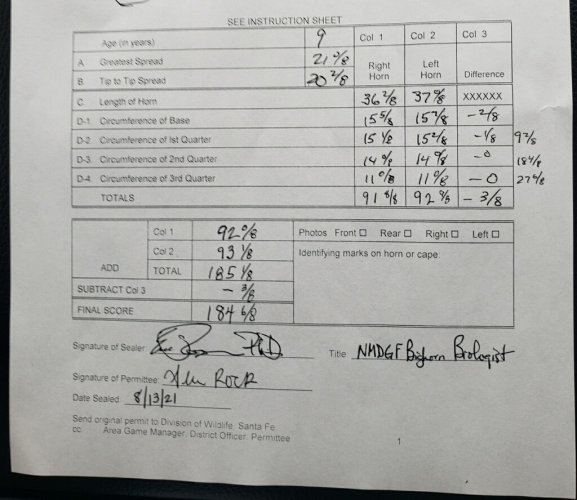 SEE INSTRUCTION SHEET
Age (in years) 9 Col 1 Col 2 Col 3
A. Greatest Spread 21 0/8 Right Horn Left Horn Difference
B. Tip to Tip Spread 20 2/8
C. Length of Horn 36 2/8 37 0/8 XXXXXX
D-1. Circumference of Base 15 5/8 15 7/8 - 2/8
D-2. Circumference of Ist Quarter 15 1/8 15 2/8 - 1/8 9 2/8
D-3. Circumference of 2nd Quarter 14 0/8 14 0/8 - 0 18 4/8
D-4. Circumference of 3rd Quarter 11 0/8 11 0/8 - 0
TOTALS 91 8/8 - 3/8
Col 1 92 0/8 Photos Front □ Rear □ Right □ Left □
Col 2 93 1/8 Identifying marks on horn or cape:
ADD TOTAL 185 1/8
SUBTRACT Col 3 - 3/8
FINAL SCORE 184 6/8
Signature of Sealer PhD Title NMDGF Bighorn Biologist
Signature of Permittee Rock
Date Sealed 8/13/21
Send original permit to Division of Wildlife, Santa Fe
cc: Area Game Manager, District Officer, Permittee
1